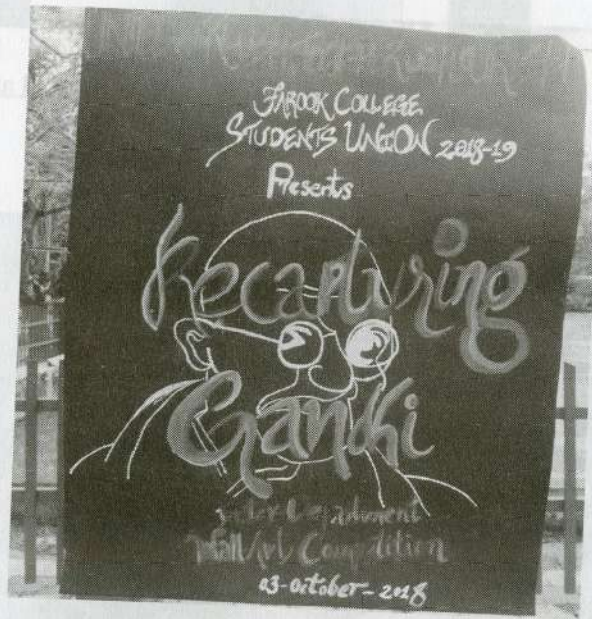 FAROOK COLLEGE
STUDENTS UNION 2018-19
Presents
Recapturing
Gandhi
Inter Department
Wall Art Competition
03-October-2018